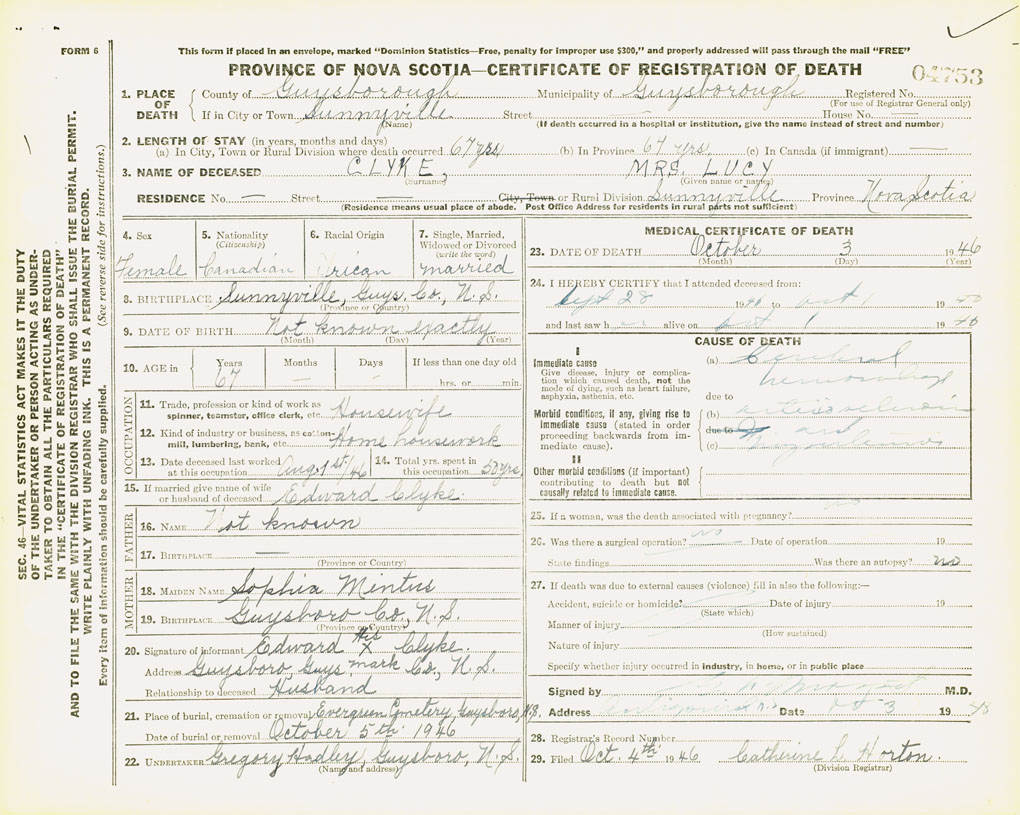 FORM 6
This form if placed in an envelope, marked "Dominion Statistics—Free, penalty for improper use $300," and properly addressed will pass through the mail "FREE"
PROVINCE OF NOVA SCOTIA—CERTIFICATE OF REGISTRATION OF DEATH
04753
1. PLACE OF DEATH
County of Guysborough Municipality of Guysborough Registered No.
(For use of Registrar General only)
If in City or Town Sunnyville Street — House No. —
(Name) (If death occurred in a hospital or institution, give the name instead of street and number)
2. LENGTH OF STAY (in years, months and days)
(a) In City, Town or Rural Division where death occurred 67 yrs (b) In Province 67 yrs. (c) In Canada (if immigrant) —
3. NAME OF DECEASED CLYKE, MRS. LUCY
(Surname) (Given name or names)
RESIDENCE No. — Street — City, Town or Rural Division Sunnyville Province Nova Scotia
(Residence means usual place of abode. Post Office Address for residents in rural parts not sufficient)
SEC. 46—VITAL STATISTICS ACT MAKES IT THE DUTY
OF THE UNDERTAKER OR PERSON ACTING AS UNDER-
TAKER TO OBTAIN ALL THE PARTICULARS REQUIRED
IN THE "CERTIFICATE OF REGISTRATION OF DEATH"
AND TO FILE THE SAME WITH THE DIVISION REGISTRAR WHO SHALL ISSUE THE BURIAL PERMIT.
WRITE PLAINLY WITH UNFADING INK. THIS IS A PERMANENT RECORD.
Every item of information should be carefully supplied. (See reverse side for instructions.)
4. Sex
Female
5. Nationality
(Citizenship)
Canadian
6. Racial Origin
7. Single, Married, Widowed or Divorced
(write the word)
married
8. BIRTHPLACE Sunnyville, Guys. Co., N.S.
(Province or Country)
9. DATE OF BIRTH Not known exactly
(Month) (Day) (Year)
10. AGE in
Years Months Days If less than one day old
67 — — hrs. or min.
OCCUPATION
11. Trade, profession or kind of work as spinner, teamster, office clerk, etc. Housewife
12. Kind of industry or business, as cotton-mill, lumbering, bank, etc. Home housework
13. Date deceased last worked at this occupation Aug. 1st/46
14. Total yrs. spent in this occupation 50 yrs.
15. If married give name of wife or husband of deceased Edward Clyke.
FATHER
16. NAME Not known
17. BIRTHPLACE —
(Province or Country)
MOTHER
18. MAIDEN NAME Sophia Mintus
19. BIRTHPLACE Guysboro Co., N.S.
(Province or Country)
20. Signature of informant Edward His X mark Clyke.
Address Guysboro, Guys. Co., N.S.
Relationship to deceased Husband
21. Place of burial, cremation or removal Evergreen Cemetery, Guysboro, N.S.
Date of burial or removal October 5th 1946
22. UNDERTAKER Gregory Hadley, Guysboro, N.S.
(Name and address)
MEDICAL CERTIFICATE OF DEATH
23. DATE OF DEATH October 3 1946
(Month) (Day) (Year)
24. I HEREBY CERTIFY that I attended deceased from:
Sept 28 1946 to Oct 1 19
and last saw h alive on Oct 1 1946
CAUSE OF DEATH
I
Immediate cause
Give disease, injury or complication which caused death, not the mode of dying, such as heart failure, asphyxia, asthenia, etc.
(a) Cerebral hemorrhage
due to
Morbid conditions, if any, giving rise to immediate cause (stated in order proceeding backwards from immediate cause).
(b)
due to and
(c)
II
Other morbid conditions (if important) contributing to death but not causally related to immediate cause.
25. If a woman, was the death associated with pregnancy? no
26. Was there a surgical operation? no Date of operation 19
State findings Was there an autopsy? no
27. If death was due to external causes (violence) fill in also the following:—
Accident, suicide or homicide? Date of injury 19
(State which)
Manner of injury
(How sustained)
Nature of injury
Specify whether injury occurred in industry, in home, or in public place
Signed by M.D.
Address Date Oct 3 19
28. Registrar's Record Number
29. Filed Oct. 4th 1946 Catherine L. Horton.
(Division Registrar)